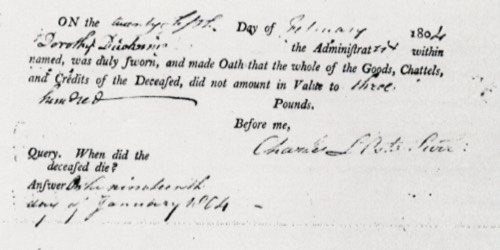 ON the twenty fifth Day of February 1804
Dorothy the Administratrix within
named, was duly sworn, and made Oath that the whole of the Goods, Chattels,
and Credits of the Deceased, did not amount in Value to three
hundred Pounds.
Before me,
Charles
Query. When did the
deceased die?
Answer On the nineteenth
day of January 1804